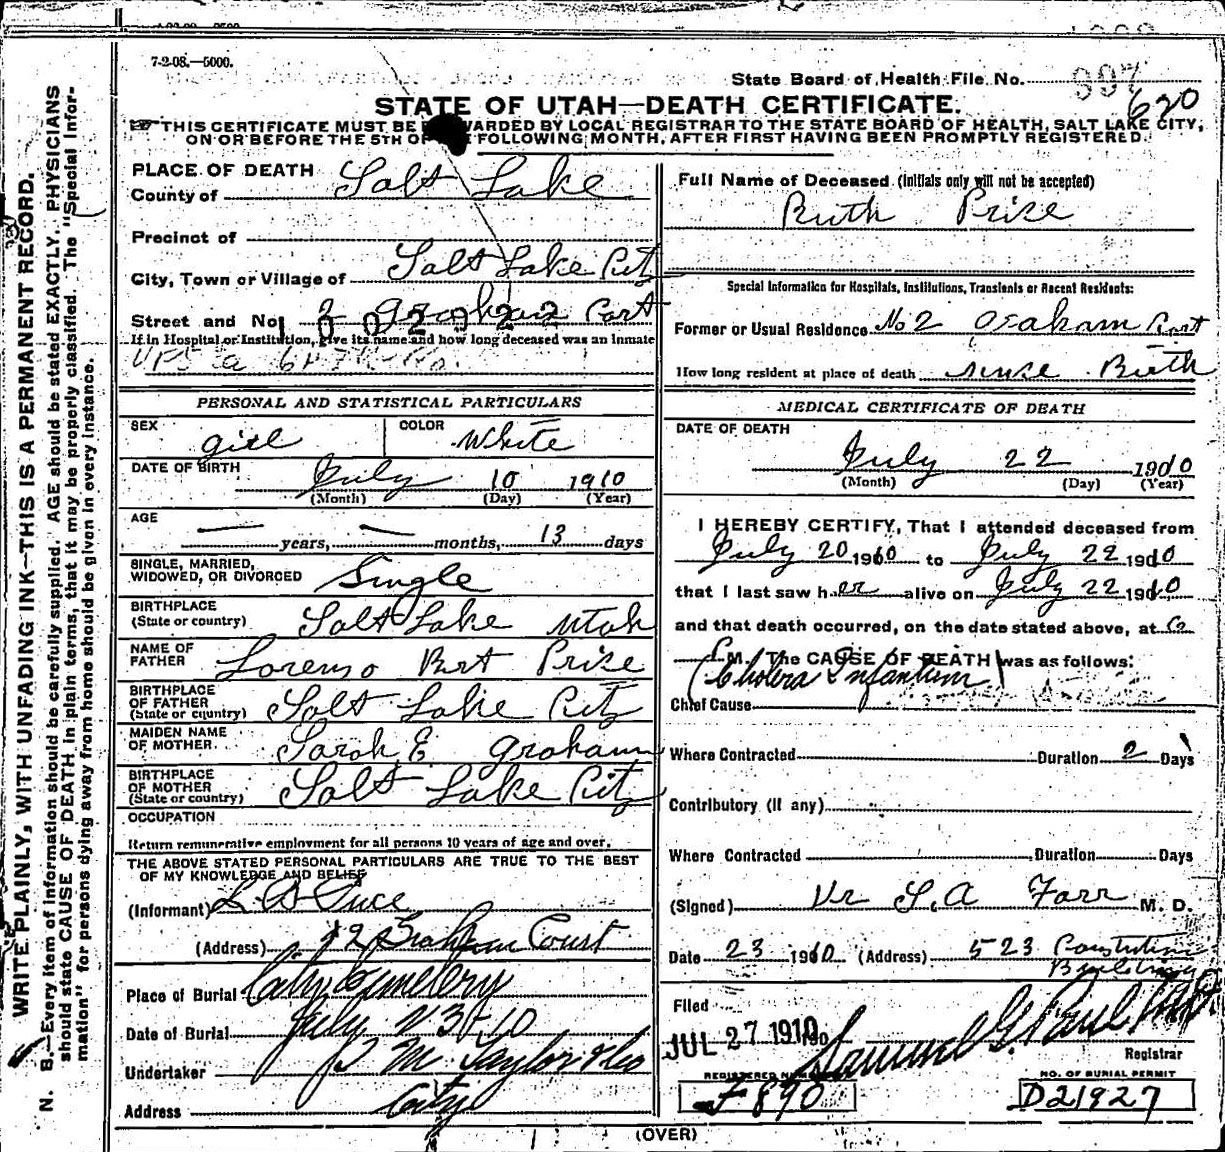 7-2-08.—5000.
State Board of Health File No. 997
620
STATE OF UTAH—DEATH CERTIFICATE.
THIS CERTIFICATE MUST BE WARDED BY LOCAL REGISTRAR TO THE STATE BOARD OF HEALTH, SALT LAKE CITY,
ON OR BEFORE THE 5TH OF FOLLOWING MONTH, AFTER FIRST HAVING BEEN PROMPTLY REGISTERED.
WRITE PLAINLY, WITH UNFADING INK—THIS IS A PERMANENT RECORD.
N. B.—Every item of information should be carefully supplied. AGE should be stated EXACTLY. PHYSICIANS
should state CAUSE OF DEATH in plain terms, that it may be properly classified. The "Special Infor-
mation" for persons dying away from home should be given in every instance.
PLACE OF DEATH
County of Salt Lake
Precinct of
City, Town or Village of Salt Lake City
Street and No. 2 Graham Cort
1002922
If in Hospital or Institution, give its name and how long deceased was an inmate
PERSONAL AND STATISTICAL PARTICULARS
SEX girl COLOR White
DATE OF BIRTH July 10 1910
(Month) (Day) (Year)
AGE — years, — months, 13 days
SINGLE, MARRIED,
WIDOWED, OR DIVORCED Single
BIRTHPLACE
(State or country) Salt Lake Utah
NAME OF
FATHER Lorenzo Bert Prise
BIRTHPLACE
OF FATHER
(State or country) Salt Lake City
MAIDEN NAME
OF MOTHER Sarah E Graham
BIRTHPLACE
OF MOTHER
(State or country) Salt Lake City
OCCUPATION
Return remunerative employment for all persons 10 years of age and over.
THE ABOVE STATED PERSONAL PARTICULARS ARE TRUE TO THE BEST
OF MY KNOWLEDGE AND BELIEF
(Informant) L B Price
(Address) 2 Graham Court
Place of Burial City Cemetery
Date of Burial July 23-10
Undertaker S M Taylor & Co
Address City
Full Name of Deceased (Initials only will not be accepted)
Ruth Prise
Special Information for Hospitals, Institutions, Transients or Recent Residents:
Former or Usual Residence No 2 Graham Cort
How long resident at place of death sinse Birth
MEDICAL CERTIFICATE OF DEATH
DATE OF DEATH
July 22 1910
(Month) (Day) (Year)
I HEREBY CERTIFY, That I attended deceased from
July 20 1910 to July 22 1910
that I last saw her alive on July 22 1910
and that death occurred, on the date stated above, at 6
P M. The CAUSE OF DEATH was as follows:
Cholera Infantum
Chief Cause
Where Contracted Duration 2 Days
Contributory (if any)
Where Contracted Duration Days
(Signed) Dr S. A Farr M. D.
Date 23 1910 (Address) 523 Constitution
Building
Filed
JUL 27 1910 Samuel G. Paul
Registrar
REGISTERED NUMBER
F 890
NO. OF BURIAL PERMIT
D21927
(OVER)